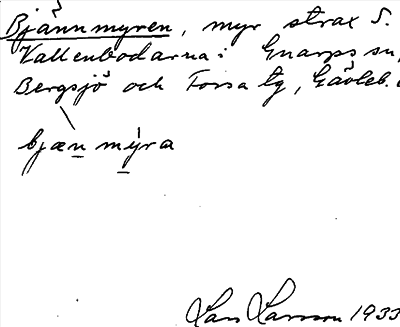 Bjännmyren, myr strax S.
Vallenbodarna i Gnarps sn,
Bergsjö och Forsa tg, Gävleb.
bjæn mýra
Lars Larsson 1933